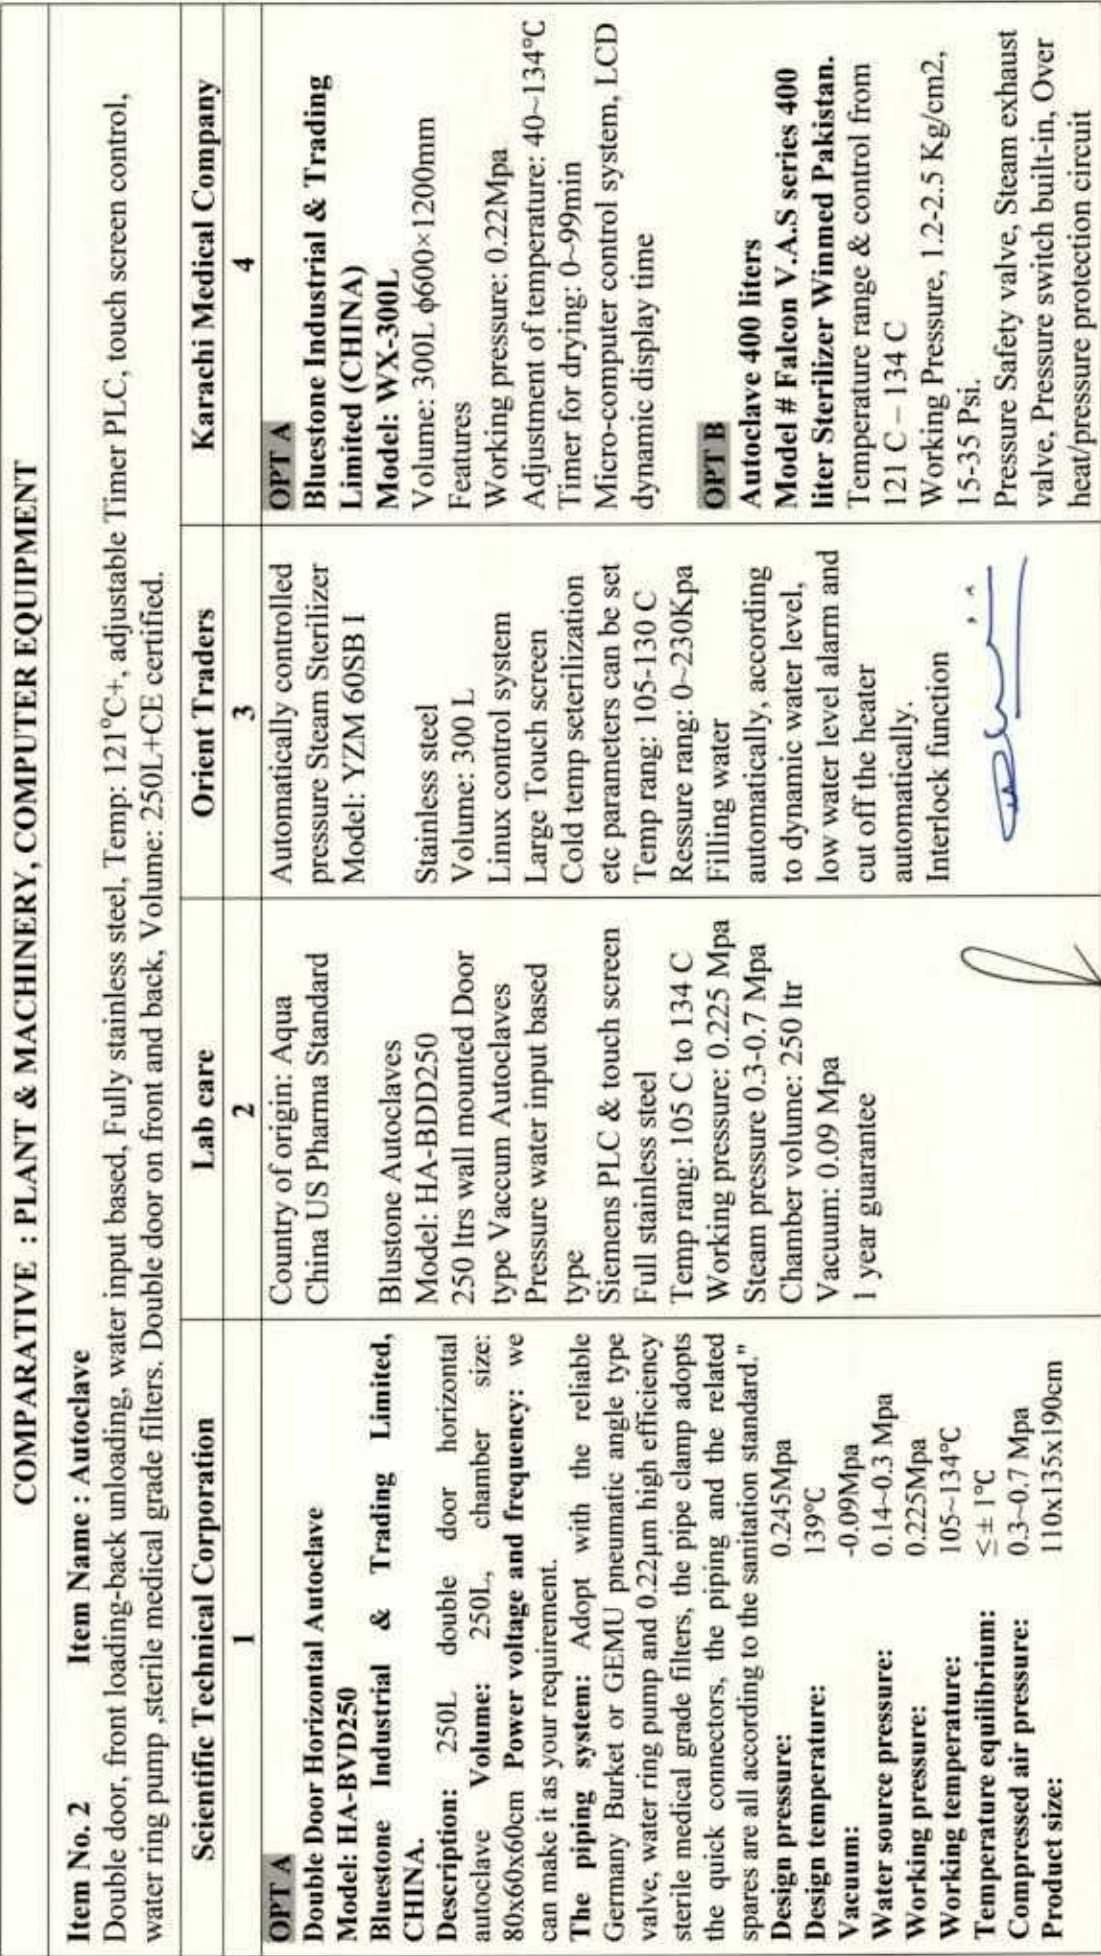 COMPARATIVE : PLANT & MACHINERY, COMPUTER EQUIPMENT
Item No. 2 Item Name : Autoclave
Double door, front loading-back unloading, water input based, Fully stainless steel, Temp: 121°C+, adjustable Timer PLC, touch screen control,
water ring pump ,sterile medical grade filters. Double door on front and back, Volume: 250L+CE certified.
Scientific Technical Corporation
1
OPT A
Double Door Horizontal Autoclave
Model: HA-BVD250
Bluestone Industrial & Trading Limited,
CHINA.
Description: 250L double door horizontal
autoclave Volume: 250L, chamber size:
80x60x60cm Power voltage and frequency: we
can make it as your requirement.
The piping system: Adopt with the reliable
Germany Burket or GEMU pneumatic angle type
valve, water ring pump and 0.22μm high efficiency
sterile medical grade filters, the pipe clamp adopts
the quick connectors, the piping and the related
spares are all according to the sanitation standard."
Design pressure: 0.245Mpa
Design temperature: 139℃
Vacuum: -0.09Mpa
Water source pressure: 0.14~0.3 Mpa
Working pressure: 0.225Mpa
Working temperature: 105~134℃
Temperature equilibrium: ≤± 1℃
Compressed air pressure: 0.3~0.7 Mpa
Product size: 110x135x190cm
Lab care
2
Country of origin: Aqua
China US Pharma Standard
Blustone Autoclaves
Model: HA-BDD250
250 ltrs wall mounted Door
type Vaccum Autoclaves
Pressure water input based
type
Siemens PLC & touch screen
Full stainless steel
Temp rang: 105 C to 134 C
Working pressure: 0.225 Mpa
Steam pressure 0.3-0.7 Mpa
Chamber volume: 250 ltr
Vacuum: 0.09 Mpa
1 year guarantee
Orient Traders
3
Automatically controlled
pressure Steam Sterilizer
Model: YZM 60SB I
Stainless steel
Volume: 300 L
Linux control system
Large Touch screen
Cold temp seterilization
etc parameters can be set
Temp rang: 105-130 C
Ressure rang: 0~230Kpa
Filling water
automatically, according
to dynamic water level,
low water level alarm and
cut off the heater
automatically.
Interlock function
Karachi Medical Company
4
OPT A
Bluestone Industrial & Trading
Limited (CHINA)
Model: WX-300L
Volume: 300L ф600×1200mm
Features
Working pressure: 0.22Mpa
Adjustment of temperature: 40~134℃
Timer for drying: 0~99min
Micro-computer control system, LCD
dynamic display time
OPT B
Autoclave 400 liters
Model # Falcon V.A.S series 400
liter Sterilizer Winmed Pakistan.
Temperature range & control from
121 C – 134 C
Working Pressure, 1.2-2.5 Kg/cm2,
15-35 Psi.
Pressure Safety valve, Steam exhaust
valve, Pressure switch built-in, Over
heat/pressure protection circuit